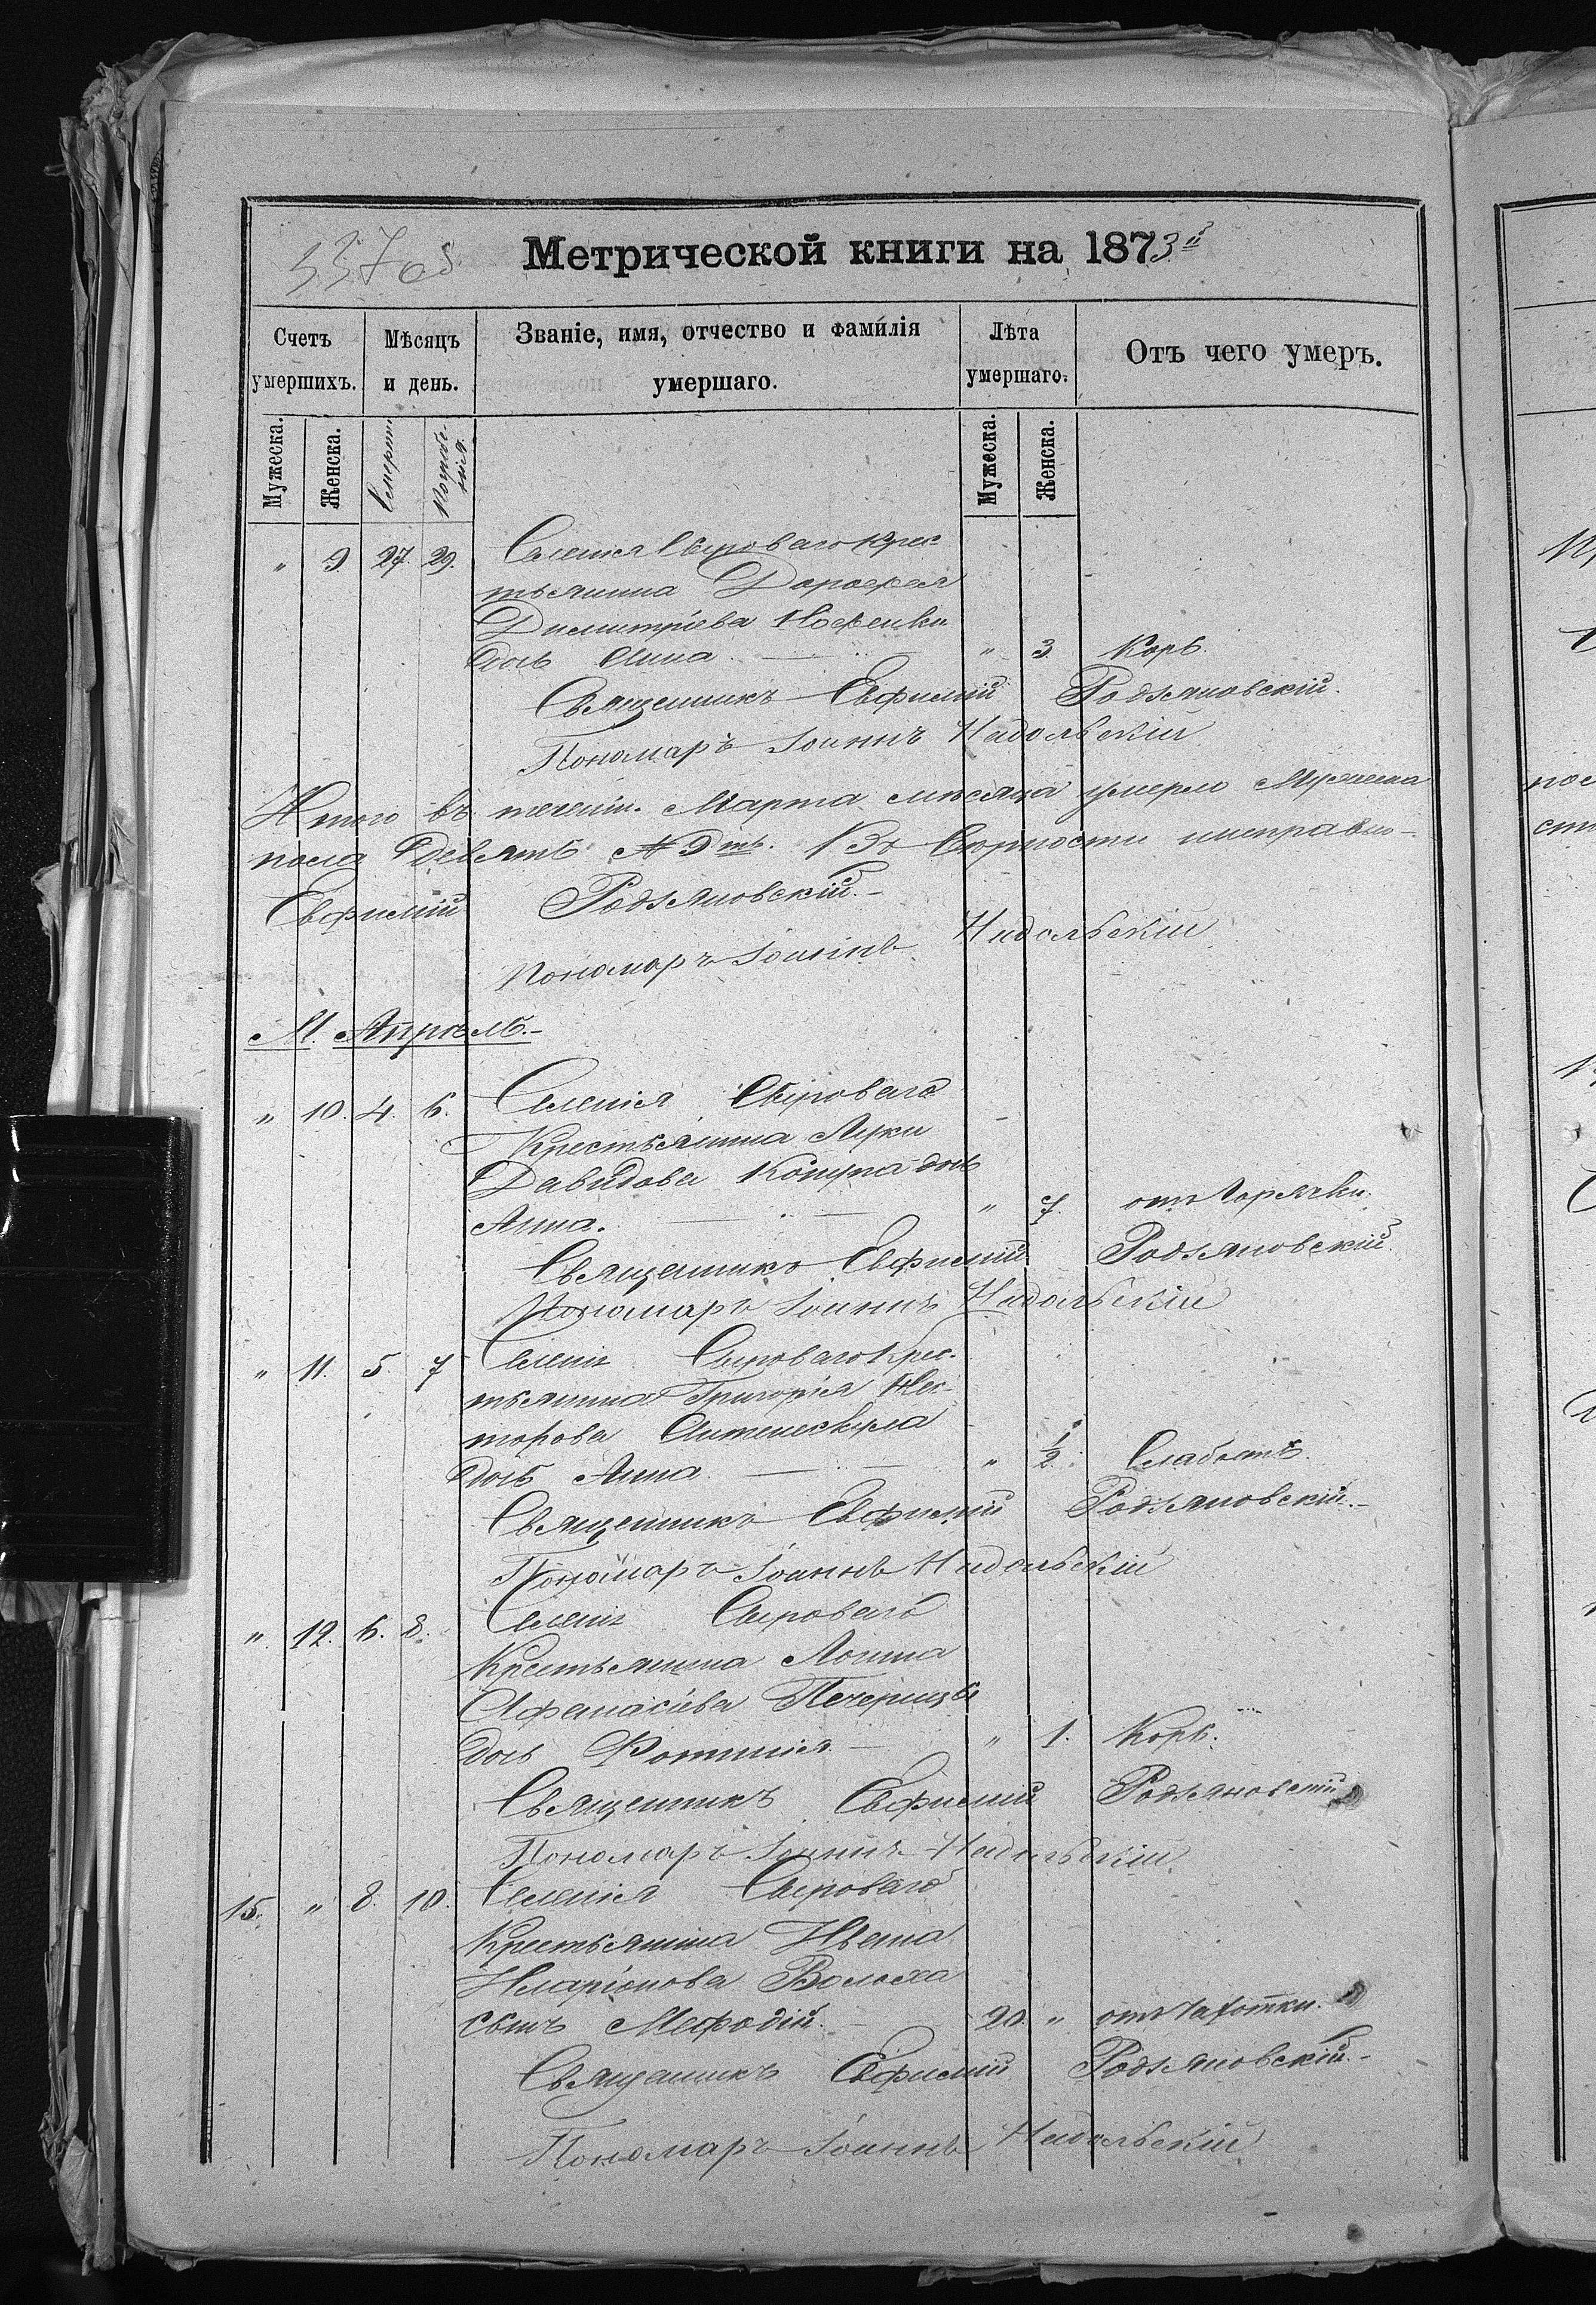 Метрической книги на 1873й
Счетъ умершихъ.
Мѣсяцъ и день.
Званіе, имя, отчество и фамилія умершаго.
Лѣта умершаго.
Отъ чего умеръ.
Мужеска. Женска. Смерти Погребенія. Мужеска. Женска.
" 9 27. 29. Селенія Сыроваго Крес
тьянина Дорофея
Димитріева
дочь Анна " 3. Корь.
Священникъ Евфимій Родзяновскій.
Пономаръ Іоаннъ Надольскій
Итого въ теченіи Марта месяца умерло Мужеска
пола девять Въ верности
Евфимій Родзяновскій
Пономаръ Іоаннъ Надольскій
М. Апрель.
" 10. 4. 6. Селенія Сыроваго
Крестьянина Луки
Давидова дочь
Анна. " 7. отъ Горячки.
Священникъ Евфимій Родзяновскій
Пономаръ Іоаннъ Надольскій
" 11. 5. 7 Селенія Сыроваго Крес-
тьянина Григорія Нес-
торова
дочь Анна " 1/2.
Священникъ Евфимій Родзяновскій
Пономаръ Іоаннъ Надольскій
" 12. 6. 8. Селенія Сыроваго
Крестьянина Логина
Афанасіева Печерицы
дочь Фотинія " 1. Корь.
Священникъ Евфимій Родзяновскій
Пономаръ Іоаннъ Надольскій
15. " 8. 10. Селенія Сыроваго
Крестьянина Ивана
Иларіонова Волоха
сынъ Мефодій 20. " отъ Чахотки.
Священникъ Евфимій Родзяновскій
Пономаръ Іоаннъ Надольскій